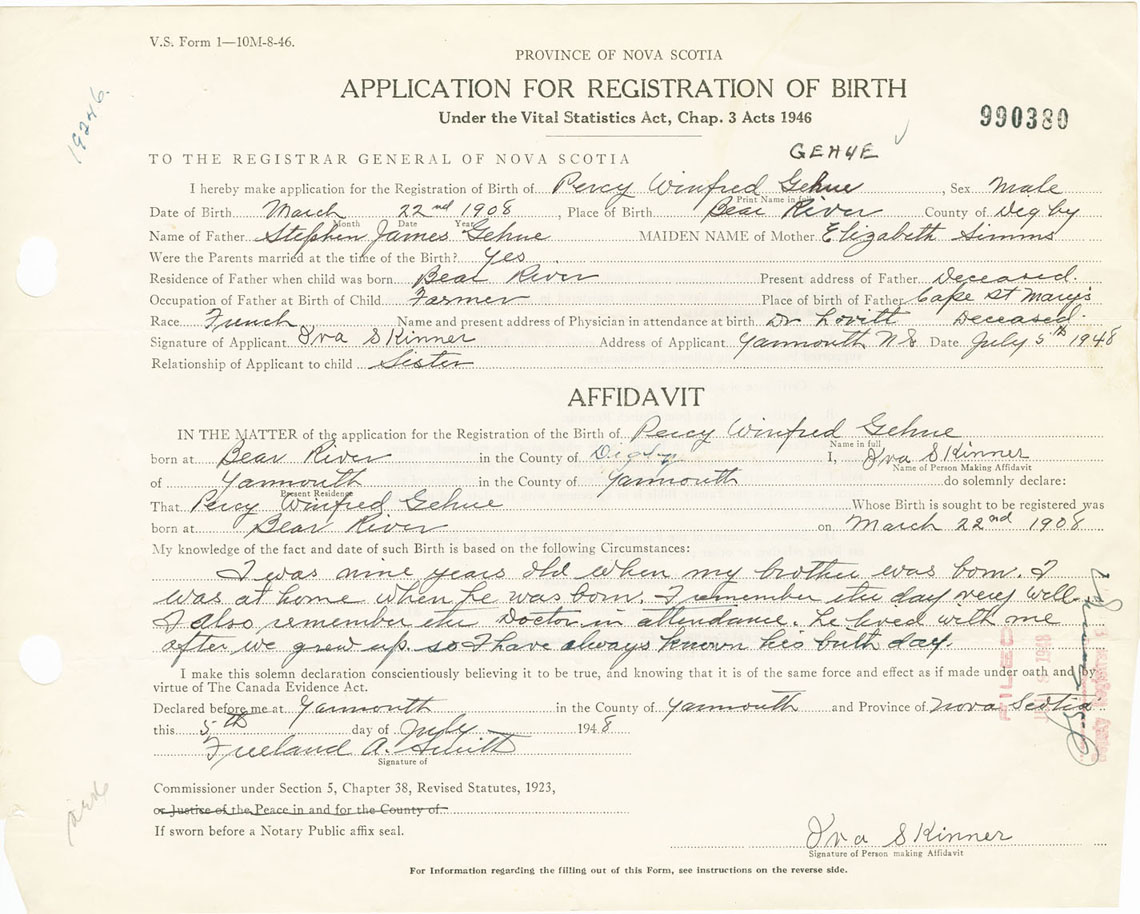 V.S. Form 1—10M-8-46.
PROVINCE OF NOVA SCOTIA
APPLICATION FOR REGISTRATION OF BIRTH
Under the Vital Statistics Act, Chap. 3 Acts 1946
19246.
990380
GEHUE
TO THE REGISTRAR GENERAL OF NOVA SCOTIA
I hereby make application for the Registration of Birth of Percy Winfred Gehue, Sex Male
Print Name in full
Date of Birth March 22nd 1908, Place of Birth Bear River County of Digby
Month Date Year
Name of Father Stephen James Gehue MAIDEN NAME of Mother Elizabeth Simms
Were the Parents married at the time of the Birth? Yes
Residence of Father when child was born Bear River Present address of Father Deceased.
Occupation of Father at Birth of Child Farmer Place of birth of Father Cape St Mary's
Race French Name and present address of Physician in attendance at birth Dr Lovitt Deceased.
Signature of Applicant Iva Skinner Address of Applicant Yarmouth N S Date July 5th 1948
Relationship of Applicant to child Sister
AFFIDAVIT
IN THE MATTER of the application for the Registration of the Birth of Percy Winfred Gehue
Name in full
born at Bear River in the County of Digby I, Iva Skinner
Name of Person Making Affidavit
of Yarmouth in the County of Yarmouth do solemnly declare:
Present Residence
That Percy Winfred Gehue Whose Birth is sought to be registered was
born at Bear River on March 22nd 1908
My knowledge of the fact and date of such Birth is based on the following Circumstances:
I was nine years old when my brother was born. I
was at home when he was born. I remember the day very well.
I also remember the Doctor in attendance. he lived with me
after we grew up. so I have always known his birth day.
I make this solemn declaration conscientiously believing it to be true, and knowing that it is of the same force and effect as if made under oath and by
virtue of The Canada Evidence Act.
Declared before me at Yarmouth in the County of Yarmouth and Province of Nova Scotia
this 5th day of July 1948
Freeland A. Smith
Signature of
Commissioner under Section 5, Chapter 38, Revised Statutes, 1923,
or Justice of the Peace in and for the County of
If sworn before a Notary Public affix seal.
Iva Skinner
Signature of Person making Affidavit
For Information regarding the filling out of this Form, see instructions on the reverse side.
FILED